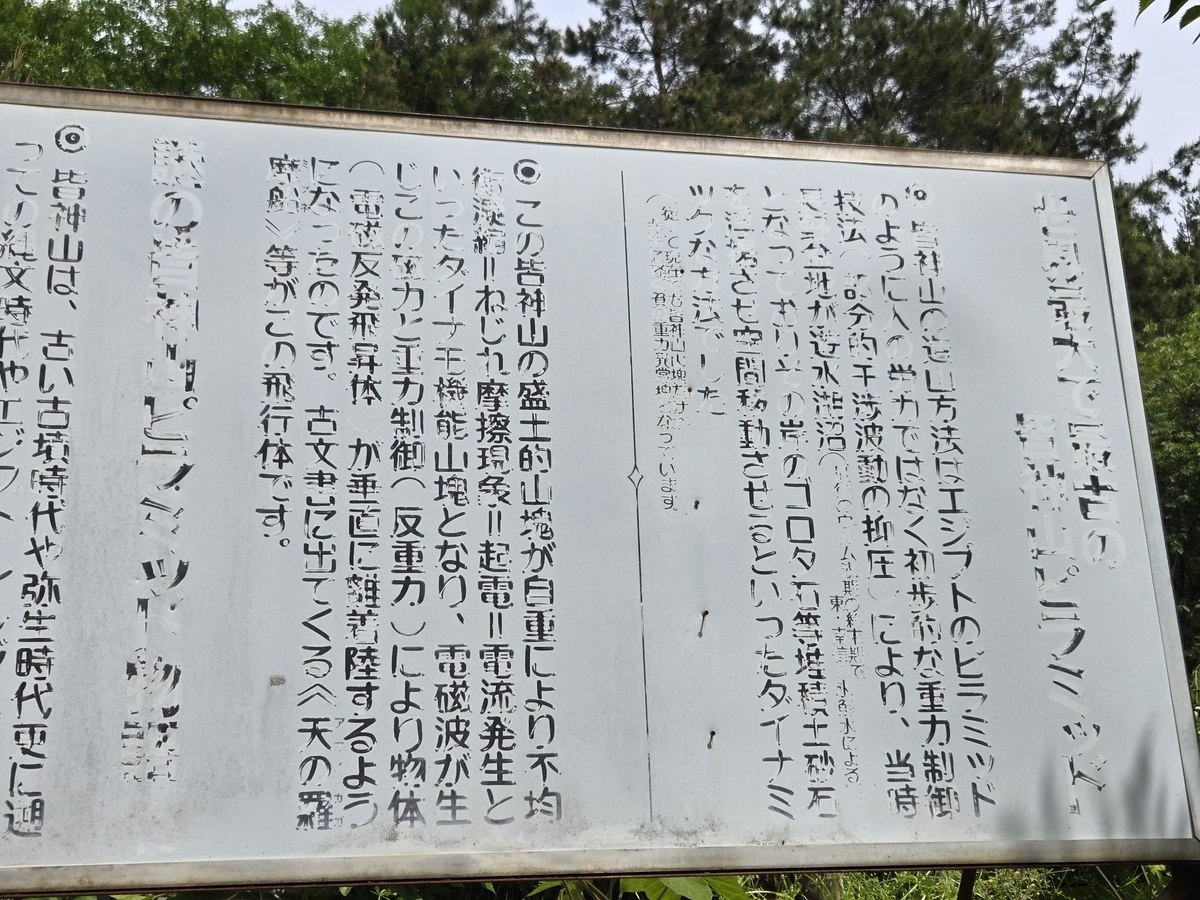 世界最大で最古の
皆神山ピラミッド
◉皆神山の造山方法はエジプトのピラミッド
のように人の労力ではなく初歩的な重力制御
技法(部分的干渉波動の抑圧)により、当時
長野盆地が遊水湖沼
となっておりその岸のゴロタ石等堆積土砂石
を浮揚させ空間移動させるといったダイナミ
ックな方法でした
になっています。
◉この皆神山の盛土的山塊が自重により不均
衡凝縮＝ねじれ摩擦現象＝起電＝電流発生と
いったダイナモ機能山塊となり、電磁波が生
じこの磁力と重力制御(反重力)により物体
(電磁反発飛昇体)が垂直に離着陸するよう
になったのです。古文書に出てくる〈天の羅
摩船〉等がこの飛行体です。
謎の皆神山ピラミッド物語
◉皆神山は、古い古墳時代や弥生時代更に遡
っての縄文時代やエジプト